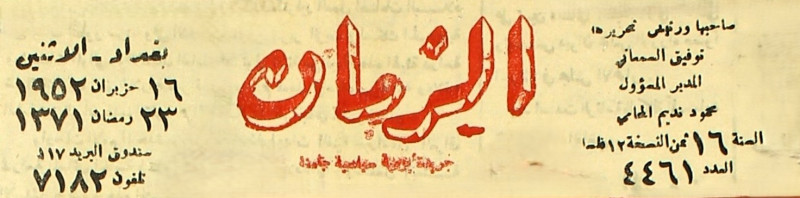 صاحبها ورئيس تحريرها
توفيق السمعاني
المدير المسؤول
محمود نديم المحامي
السنة ١٦ ثمن النسخة ١٢ فلسا
العدد ٤٤٦١
الزمان
جريدة يومية سياسية جامعة
بغداد - الاثنين
١٦ حزيران ١٩٥٢
٢٣ رمضان ١٣٧١
صندوق البريد ١١٧
تلفون ٧١٨٢